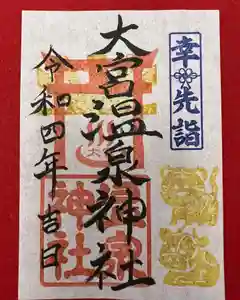 幸先詣
大宮温泉神社
令和四年 吉日
神社